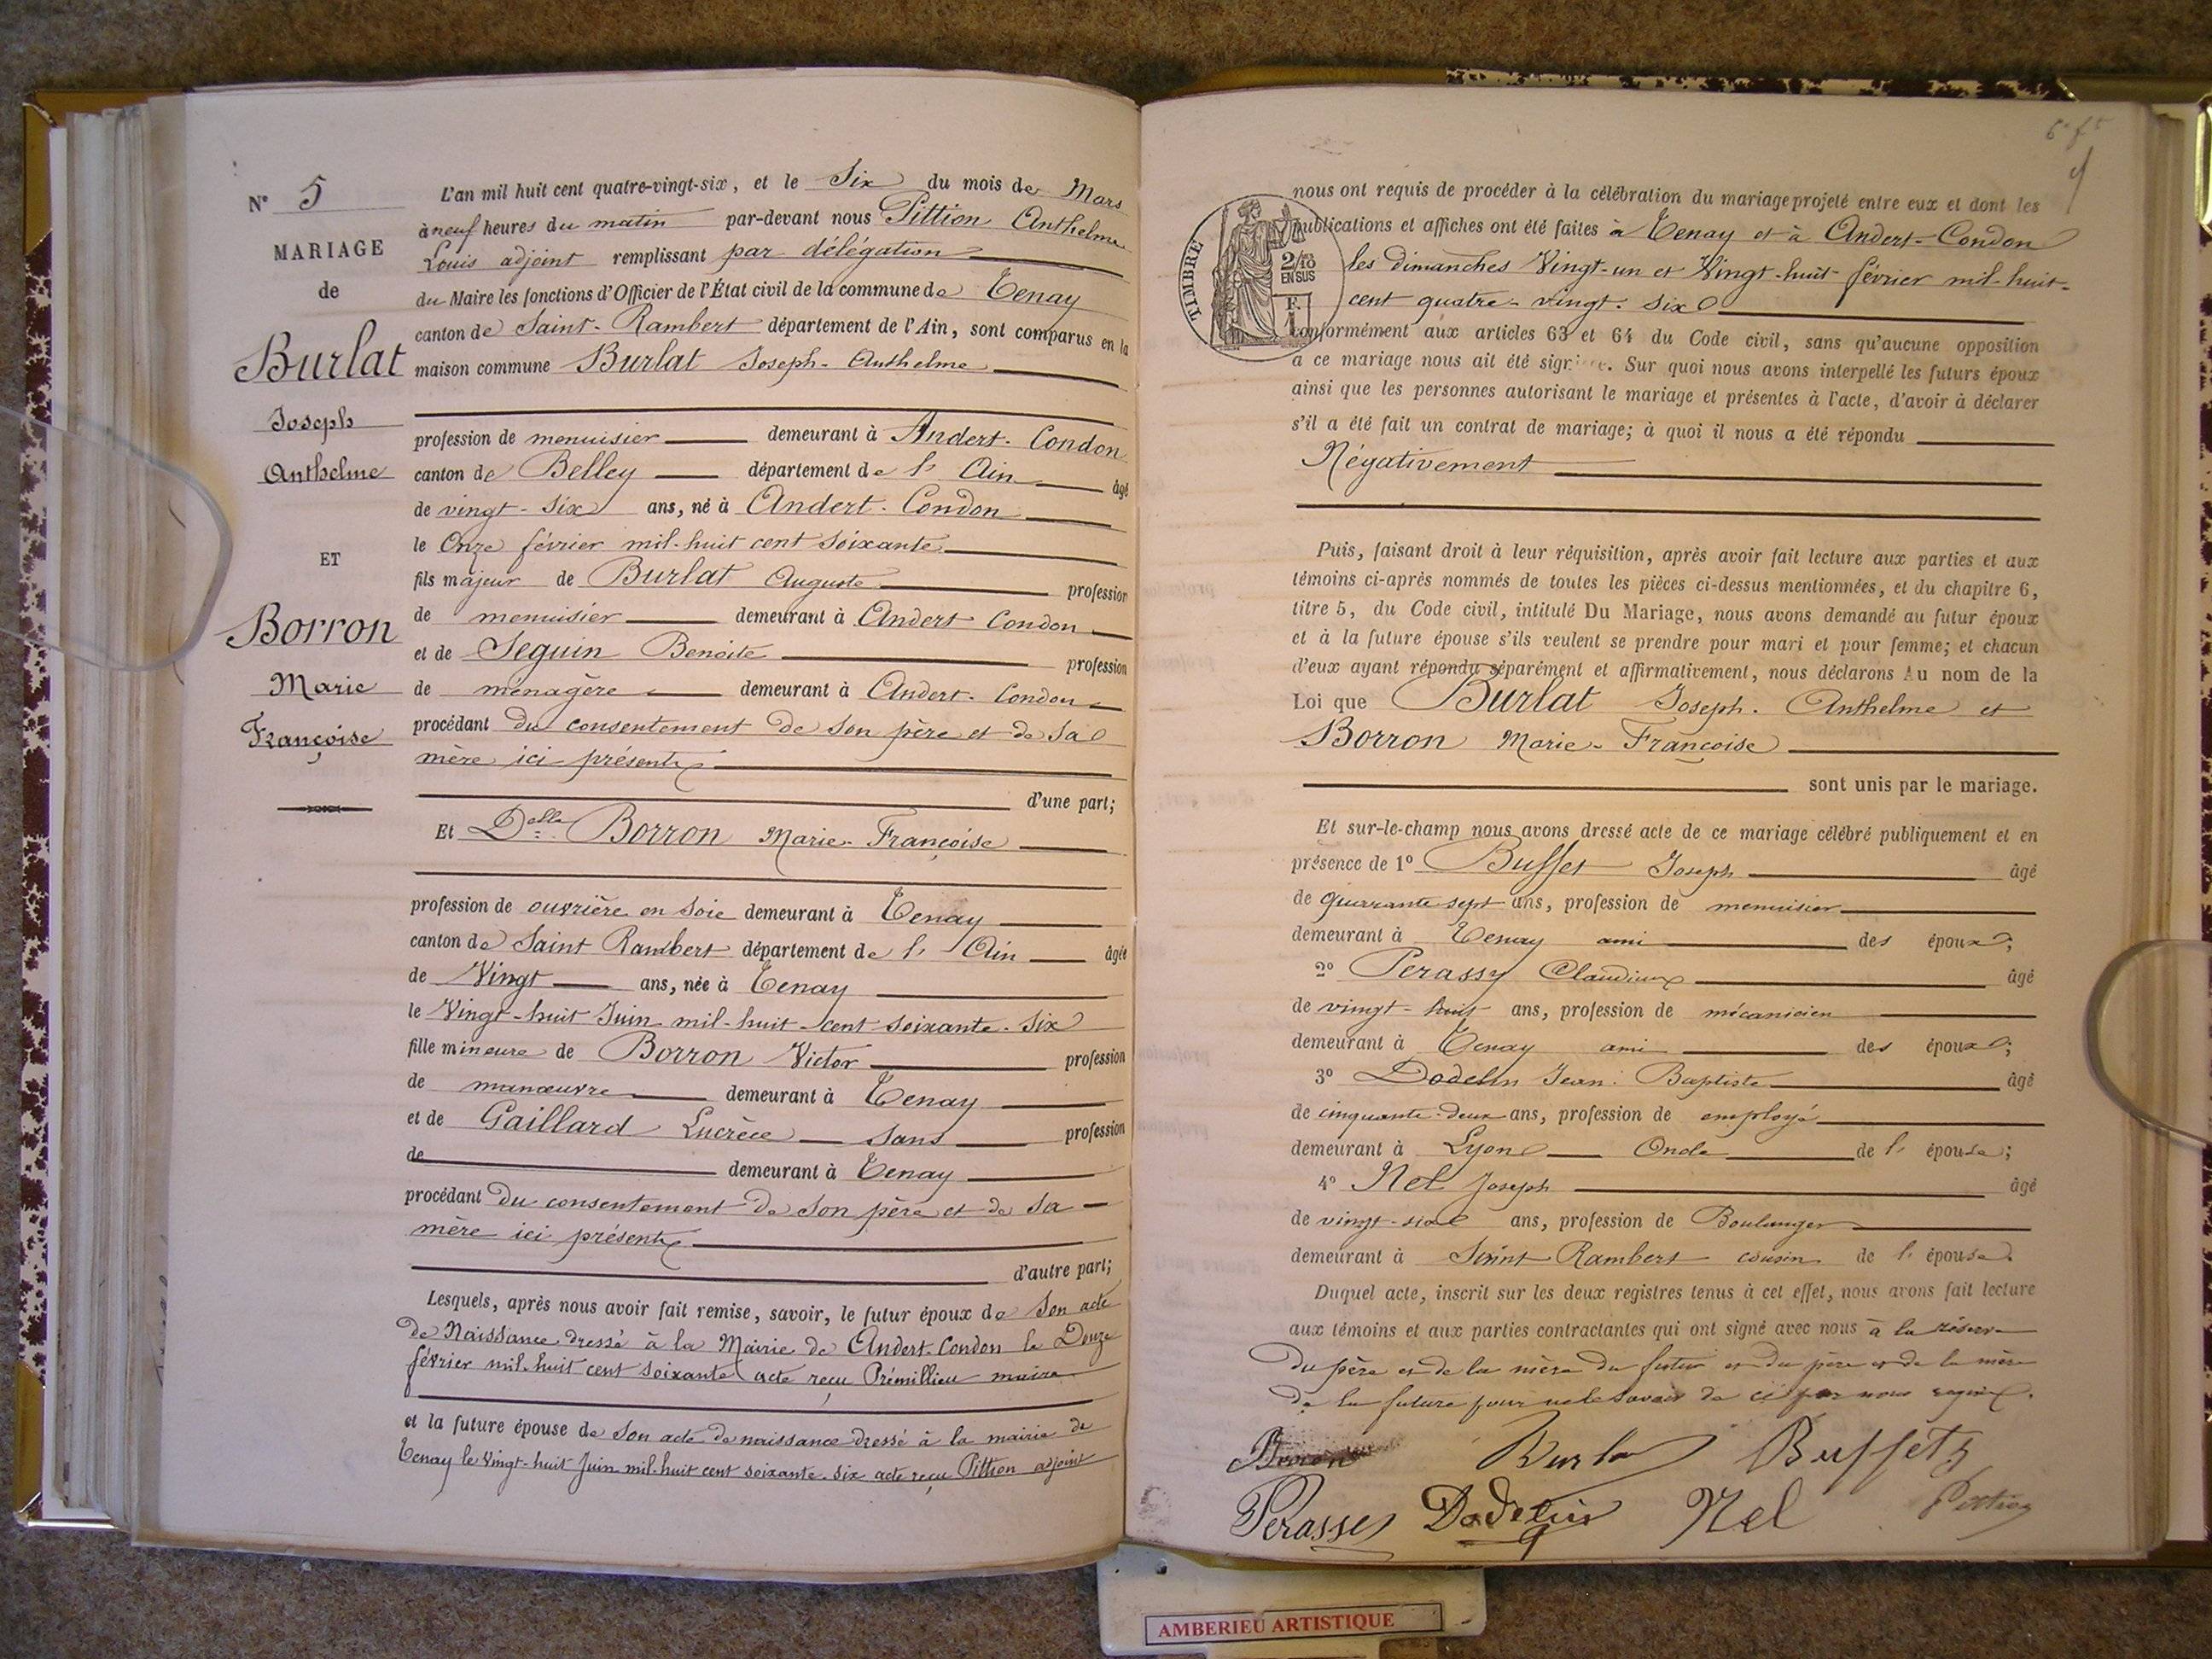 N° 5
MARIAGE
de
Burlat
Joseph
Anthelme
ET
Borron
Marie
Françoise
L'an mil huit cent quatre-vingt-six, et le Six du mois de Mars
à neuf heures du matin par-devant nous Pittion Anthelme
Louis adjoint remplissant par délégation
du Maire les fonctions d'Officier de l'État civil de la commune de Tenay
canton de Saint-Rambert département de l'Ain, sont comparus en la
maison commune Burlat Joseph-Anthelme
profession de menuisier demeurant à Andert-Condon
canton de Belley département de l'Ain âgé
de vingt-six ans, né à Andert-Condon
le Onze février mil-huit cent soixante
fils majeur de Burlat Auguste profession
de menuisier demeurant à Andert Condon
et de Seguin Benoite profession
de ménagère demeurant à Andert-Condon
procédant du consentement de son père et de sa
mère ici présents
d'une part;
Et Delle Borron Marie-Françoise
profession de ouvrière en soie demeurant à Tenay
canton de Saint Rambert département de l'Ain âgée
de Vingt ans, née à Tenay
le Vingt-huit Juin mil-huit-cent soixante-six
fille mineure de Borron Victor profession
de manœuvre demeurant à Tenay
et de Gaillard Lucrèce sans profession
de demeurant à Tenay
procédant du consentement de son père et de sa
mère ici présents
d'autre part;
Lesquels, après nous avoir fait remise, savoir, le futur époux de son acte
de Naissance dressé à la Mairie de Andert-Condon le Douze
février mil-huit cent soixante acte reçu Prémillieu maire
et la future épouse de son acte de naissance dressé à la mairie de
Tenay le Vingt-huit Juin mil-huit cent soixante-six acte reçu Pittion adjoint
nous ont requis de procéder à la célébration du mariage projeté entre eux et dont les
publications et affiches ont été faites à Tenay et à Andert-Condon
les dimanches Vingt-un et Vingt-huit février mil-huit-
cent quatre-vingt-six
TIMBRE
2/10 EN SUS
F. 1
conformément aux articles 63 et 64 du Code civil, sans qu'aucune opposition
à ce mariage nous ait été signifiée. Sur quoi nous avons interpellé les futurs époux
ainsi que les personnes autorisant le mariage et présentes à l'acte, d'avoir à déclarer
s'il a été fait un contrat de mariage; à quoi il nous a été répondu
Négativement
Puis, faisant droit à leur réquisition, après avoir fait lecture aux parties et aux
témoins ci-après nommés de toutes les pièces ci-dessus mentionnées, et du chapitre 6,
titre 5, du Code civil, intitulé Du Mariage, nous avons demandé au futur époux
et à la future épouse s'ils veulent se prendre pour mari et pour femme; et chacun
d'eux ayant répondu séparément et affirmativement, nous déclarons Au nom de la
Loi que Burlat Joseph-Anthelme et
Borron Marie-Françoise
sont unis par le mariage.
Et sur-le-champ nous avons dressé acte de ce mariage célébré publiquement et en
présence de 1° Buffet Joseph âgé
de quarante sept ans, profession de menuisier
demeurant à Tenay ami des époux;
2° Perassy Claudius âgé
de vingt-huit ans, profession de mécanicien
demeurant à Tenay ami des époux;
3° Dodelin Jean-Baptiste âgé
de cinquante-deux ans, profession de employé
demeurant à Lyon Oncle de l'épouse;
4° Nel Joseph âgé
de vingt-six ans, profession de Boulanger
demeurant à Saint Rambert cousin de l'épouse.
Duquel acte, inscrit sur les deux registres tenus à cet effet, nous avons fait lecture
aux témoins et aux parties contractantes qui ont signé avec nous à la réserve
du père et de la mère du futur et du père et de la mère
de la future pour ne le savoir de ce par nous requis.
Borron Burlat Buffet
Perassy Dodelin Nel Pittion
AMBERIEU ARTISTIQUE